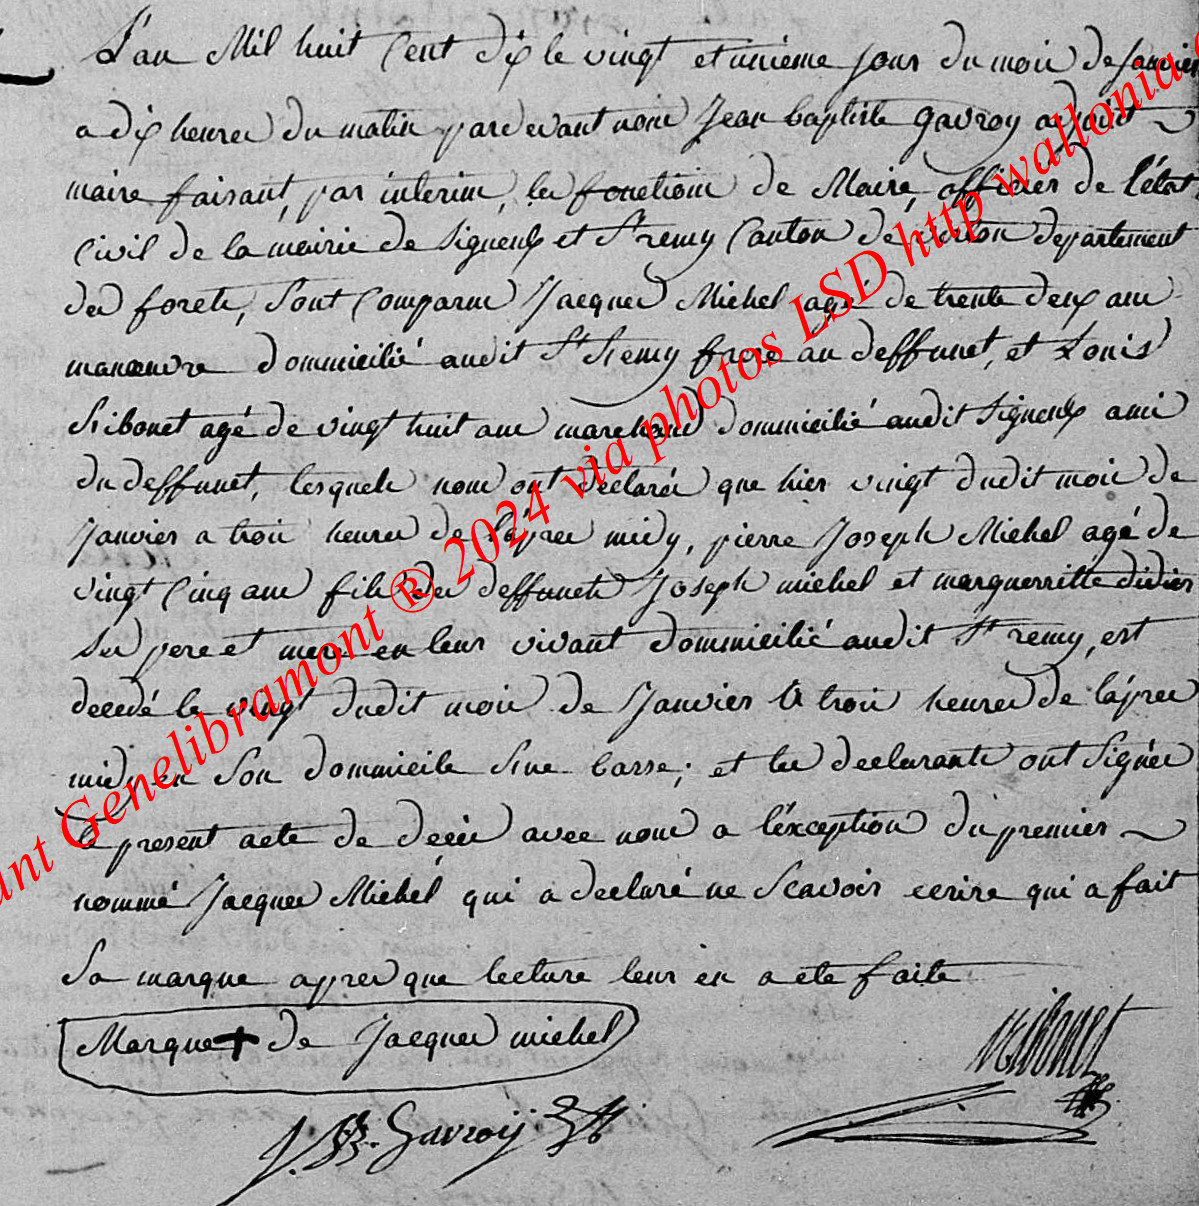 L'an Mil huit Cent dix le vingt et unieme jour du mois de Janvier
a dix heures du matin pardevant nous Jean baptiste Gavroy adjoint
maire faisant, par interim, les fonctions de Maire, officier de l'état
Civil de la mairie de Signeulx et St remy Canton de virton departement
des forets, Sont Comparus Jacques Michel agé de trente deux ans
manœuvre dommicilié audit St Remy frere au deffunct, et Louis
Ribonet agé de vingt huit ans marchand dommicilié audit Signeulx ami
du deffunct, lesquels nous ont déclarés que hier vingt dudit mois de
Janvier a trois heures de l'apres midy, pierre Joseph Michel agé de
vingt Cinq ans fils des deffuncts Joseph michel et marguerritte didier
Ses pere et mere en leur vivant dommicilié audit St remy, est
decedé le vingt dudit mois de Janvier a trois heures de l'apres
midy en Son dommicile Sine basse; et les declarants ont Signés
le present acte de decès avec nous a l'éxception du premier
nommé Jacques Michel qui a declaré ne Scavoir ecrire qui a fait
Sa marque apres que lecture leur en a eté faite
Marque + de Jacques michel
Ribonet
J. B. Gavroy
Genelibramont ® 2024 via photos LSD http wallonia